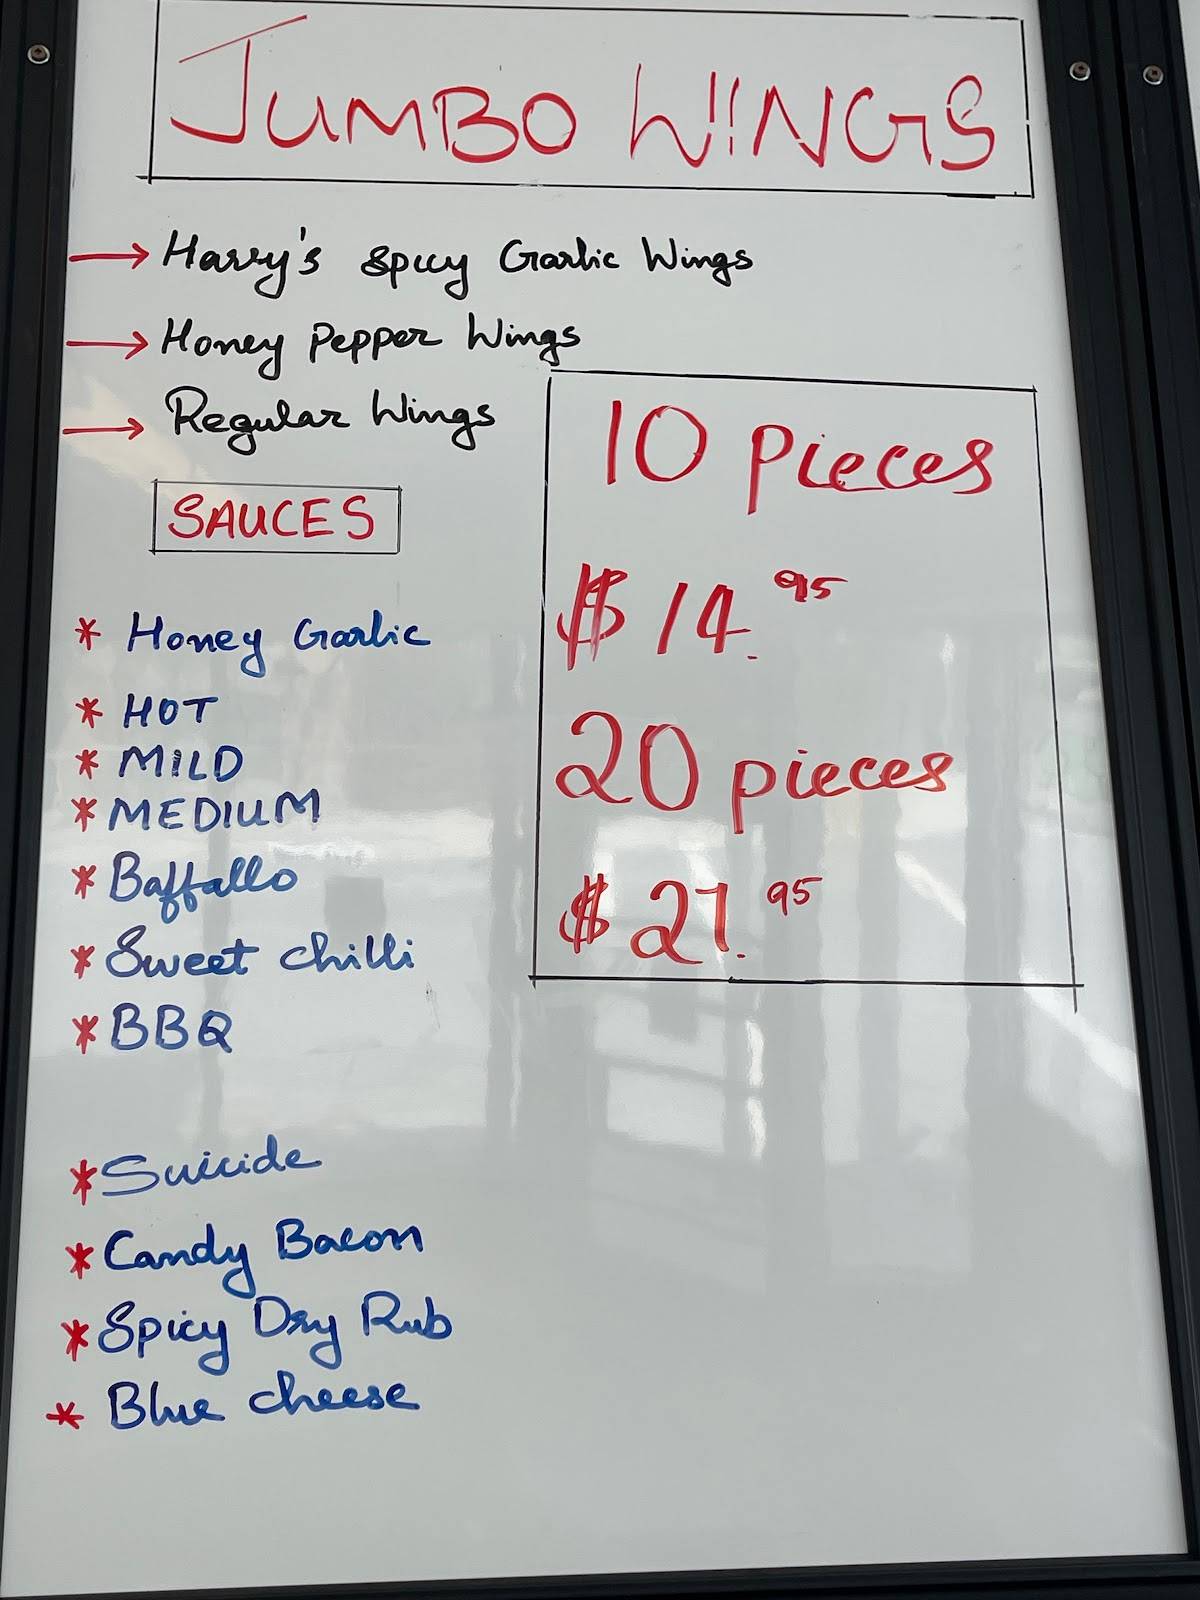 JUMBO WINGS
→ Harry's Spicy Garlic Wings
→ Honey Pepper Wings
→ Regular Wings
SAUCES
* Honey Garlic
* HOT
* MILD
* MEDIUM
* Baffallo
* Sweet chilli
* BBQ
* Suicide
* Candy Bacon
* Spicy Dry Rub
* Blue cheese
10 pieces
$ 14.95
20 pieces
$ 27.95